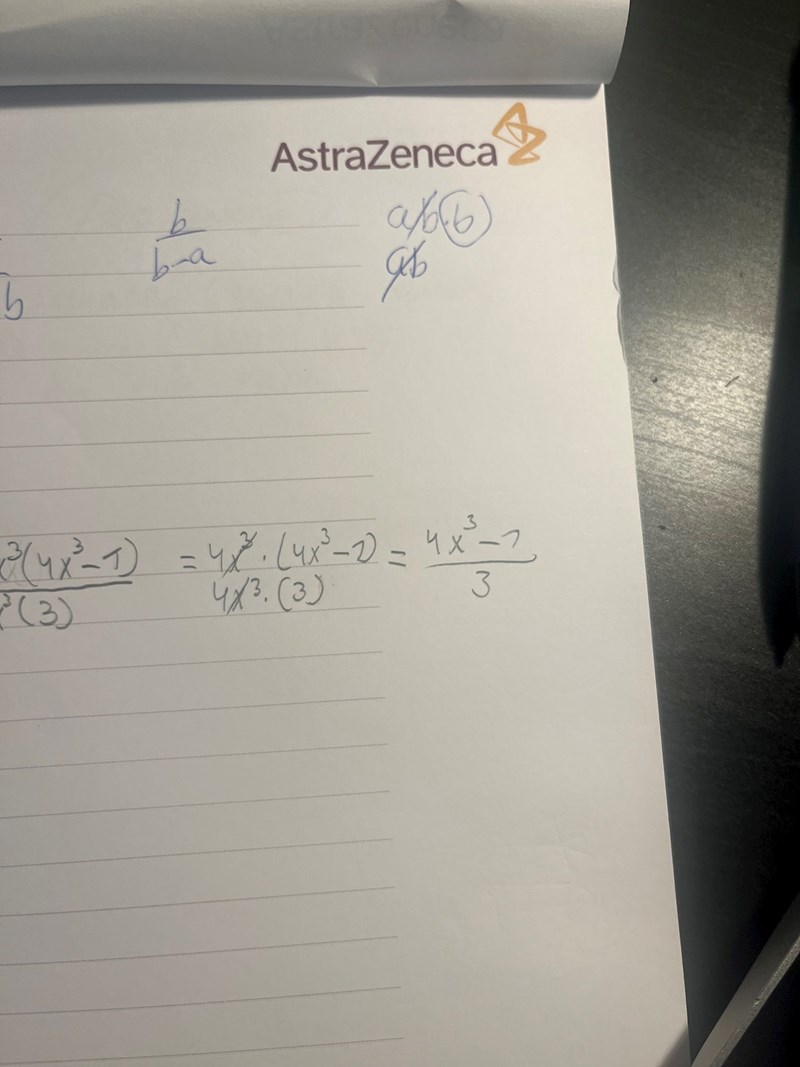 AstraZeneca
b
b-a
ab·b
ab
b
³(4x³-1) = 4x³·(4x³-1) = 4x³-1
³(3) 4x³·(3) 3